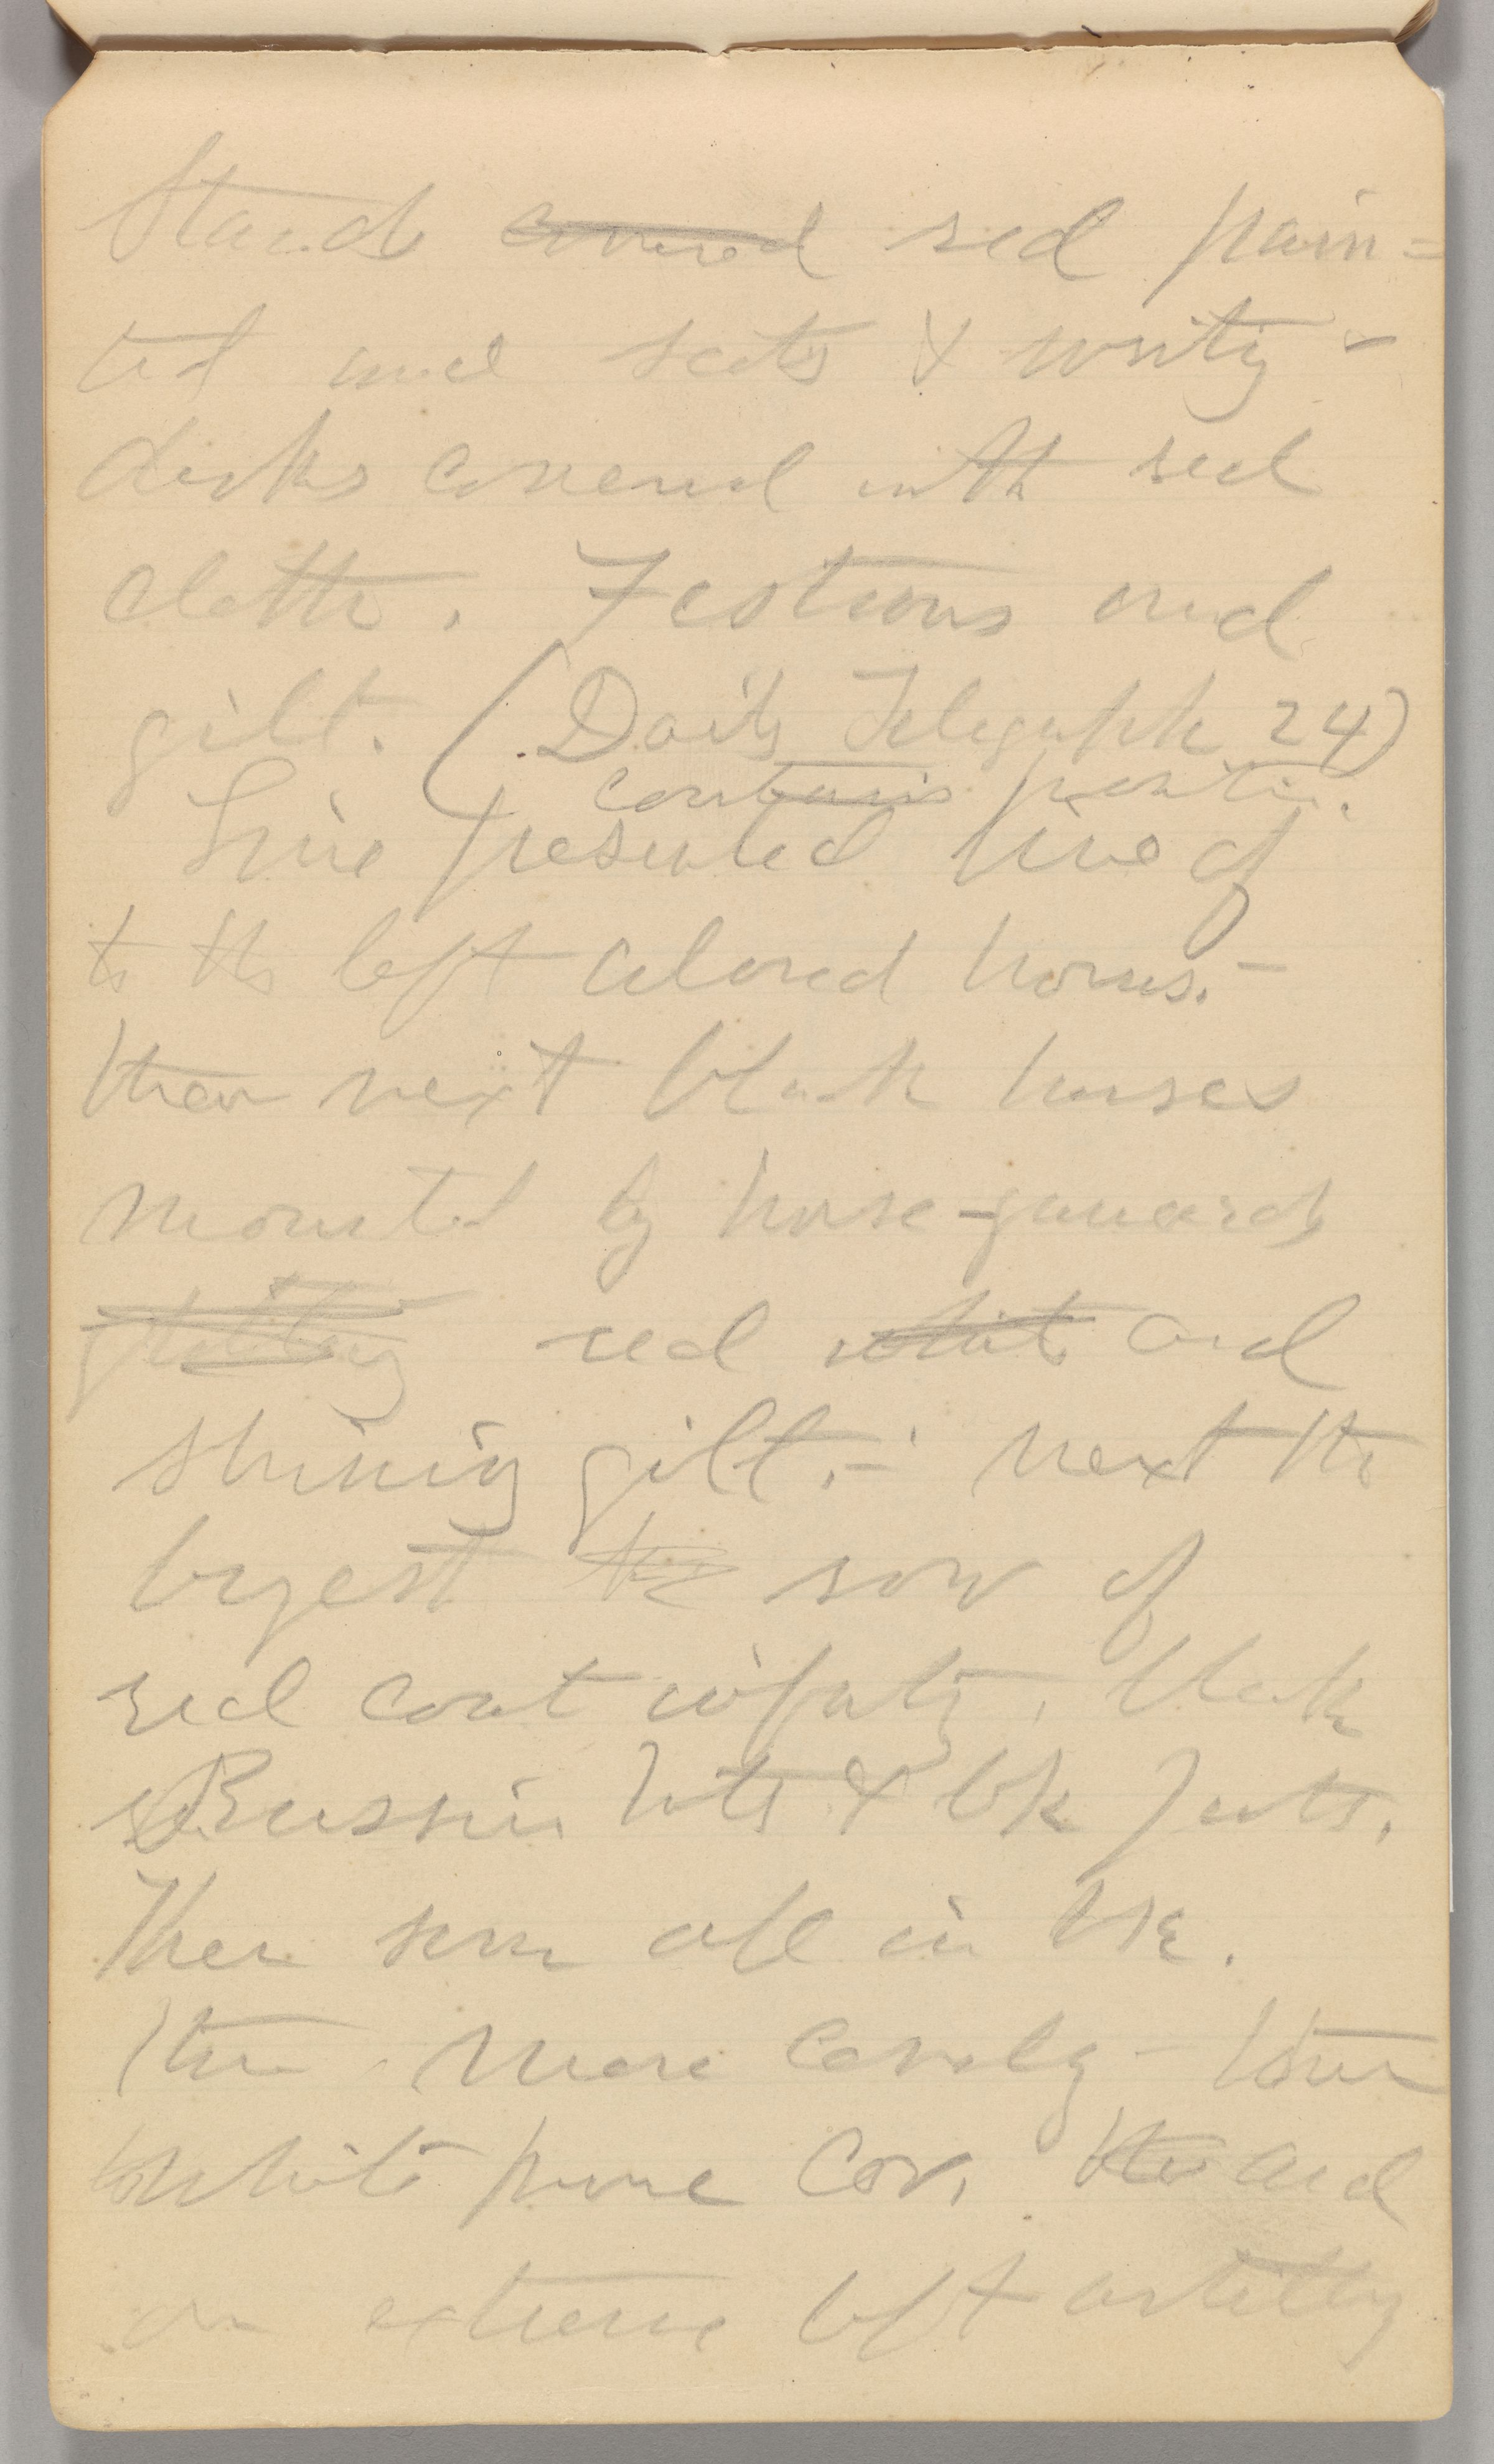 Stands covered red pain=
ted and seats & writing-
desks covered with red
cloth. Festoons and
gilt. (Daily Telegraph 24)
contains
Line presented line of
to the left colored horses.-
then next black horses
mounted by horse-guards
red white and
shining gilt.- next the
largest the row of
red coat infantry. black
Russian hats & bk
Then some all in bk.
then more cavalry - then
white plume Cav. the and
on extreme left artillery